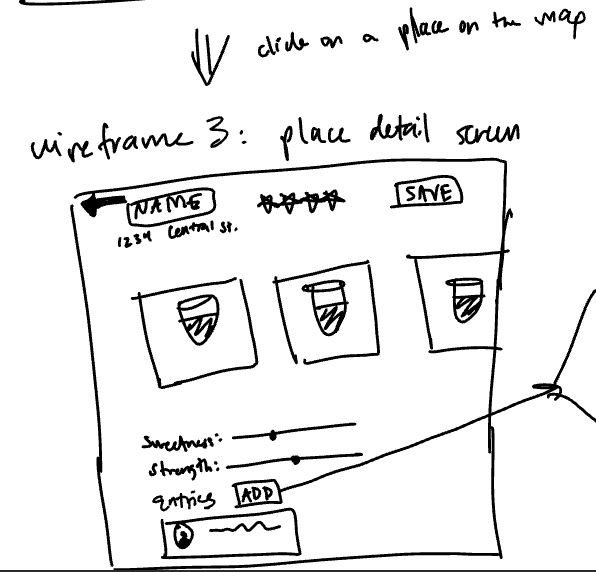 click on a place on the map
wireframe 3: place detail screen
NAME
SAVE
1234 Central St.
sweetness:
strength:
entries ADD